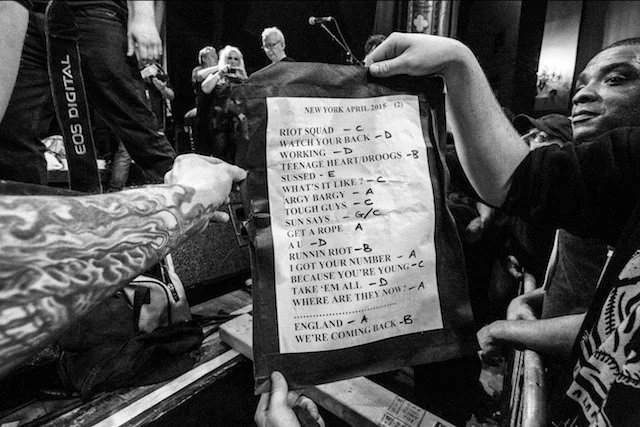 EOS DIGITAL
NEW YORK APRIL 2015 (2)
RIOT SQUAD - C
WATCH YOUR BACK - D
WORKING - D
TEENAGE HEART/DROOGS - B
SUSSED - E
WHAT'S IT LIKE? - C
ARGY BARGY - A
TOUGH GUYS - C
SUN SAYS - G/C
GET A ROPE A
A U - D
RUNNIN RIOT - B
I GOT YOUR NUMBER - A
BECAUSE YOU'RE YOUNG - C
TAKE 'EM ALL - D
WHERE ARE THEY NOW? - A
..............................
ENGLAND - A
WE'RE COMING BACK - B